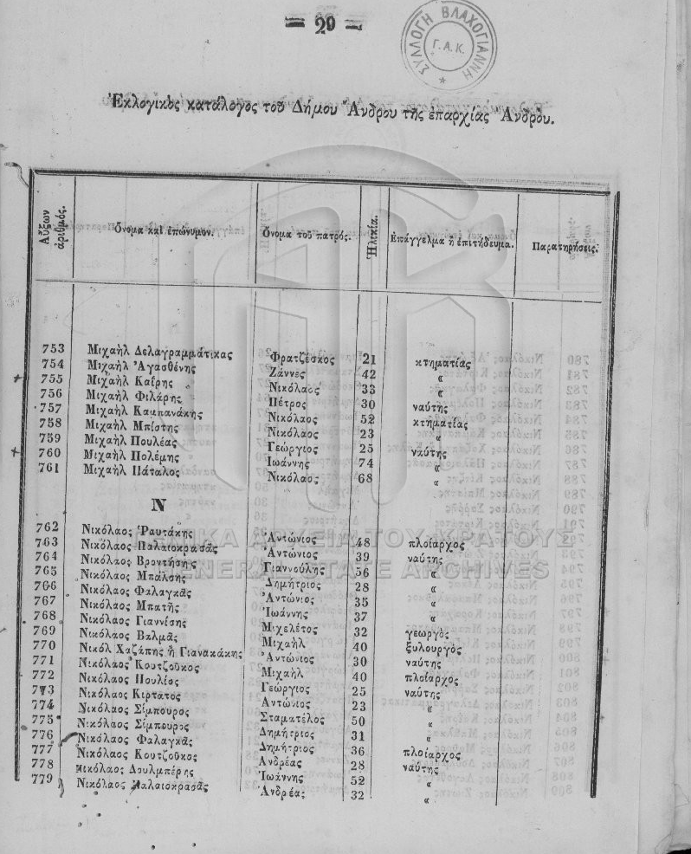 = 29 =
ΣΥΛΛΟΓΗ ΒΛΑΧΟΓΙΑΝΝΗ
Γ.Α.Κ.
Ἐκλογικὸς κατάλογος τοῦ Δήμου Ἄνδρου τῆς ἐπαρχίας Ἄνδρου.
Αὔξων ἀριθμός. Ὄνομα καὶ ἐπώνυμον. Ὄνομα τοῦ πατρός. Ἡλικία. Ἐπάγγελμα ἢ ἐπιτήδευμα. Παρατηρήσεις.
753 Μιχαὴλ Δελαγραμμάτικας Φρατζέσκος 21 κτηματίας
754 Μιχαὴλ Ἀγασθένης Ζάννες 42 «
755 Μιχαὴλ Καΐρης Νικόλαος 33 «
756 Μιχαὴλ Φιλάρης Πέτρος 30 ναύτης
757 Μιχαὴλ Καμπανάκης Νικόλαος 52 κτηματίας
758 Μιχαὴλ Μπίστης Νικόλαος 23 «
759 Μιχαὴλ Πουλέας Γεώργιος 25 ναύτης
760 Μιχαὴλ Πολέμης Ἰωάννης 74 «
761 Μιχαὴλ Πάταλος Νικόλαος 68 «
Ν
762 Νικόλαος Ῥαυτάκης Ἀντώνιος 48 πλοίαρχος
763 Νικόλαος Παλαιοκρασᾶς Ἀντώνιος 39 ναύτης
764 Νικόλαος Βροντήσης Γιαννούλης 56 «
765 Νικόλαος Μπάλσης Δημήτριος 28 «
766 Νικόλαος Φαλαγκᾶς Ἀντώνιος 35 «
767 Νικόλαος Μπατῆς Ἰωάννης 37 «
768 Νικόλαος Γιαννίσης Μιχελέτος 32 γεωργὸς
769 Νικόλαος Βαλμᾶς Μιχαὴλ 40 ξυλουργὸς
770 Νικόλ Χαζάπης ἢ Γιανακάκης Ἀντώνιος 30 ναύτης
771 Νικόλαος Κουτζοῦκος Μιχαὴλ 40 πλοίαρχος
772 Νικόλαος Πουλίος Γεώργιος 25 ναύτης
773 Νικόλαος Κιρτατος Ἀντώνιος 23 «
774 Νικόλαος Σίμπουρος Σταματέλος 50 «
775 Νικόλαος Σίμπουρος Δημήτριος 31 «
776 Νικόλαος Φαλαγκᾶς Δημήτριος 36 πλοίαρχος
777 Νικόλαος Κουτζοῦκος Ἀνδρέας 28 ναύτης
778 Νικόλαος Δουλμπέρης Ἰωάννης 52 «
779 Νικόλαος Παλαιοκρασᾶς Ἀνδρέας 32 «
ΓΕΝΙΚΑ ΑΡΧΕΙΑ ΤΟΥ ΚΡΑΤΟΥΣ
GENERAL STATE ARCHIVES